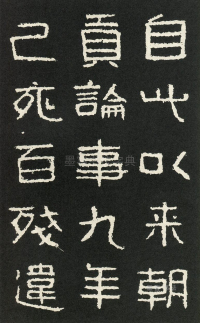 自此以来朝
貢論事九年
己亥百殘違